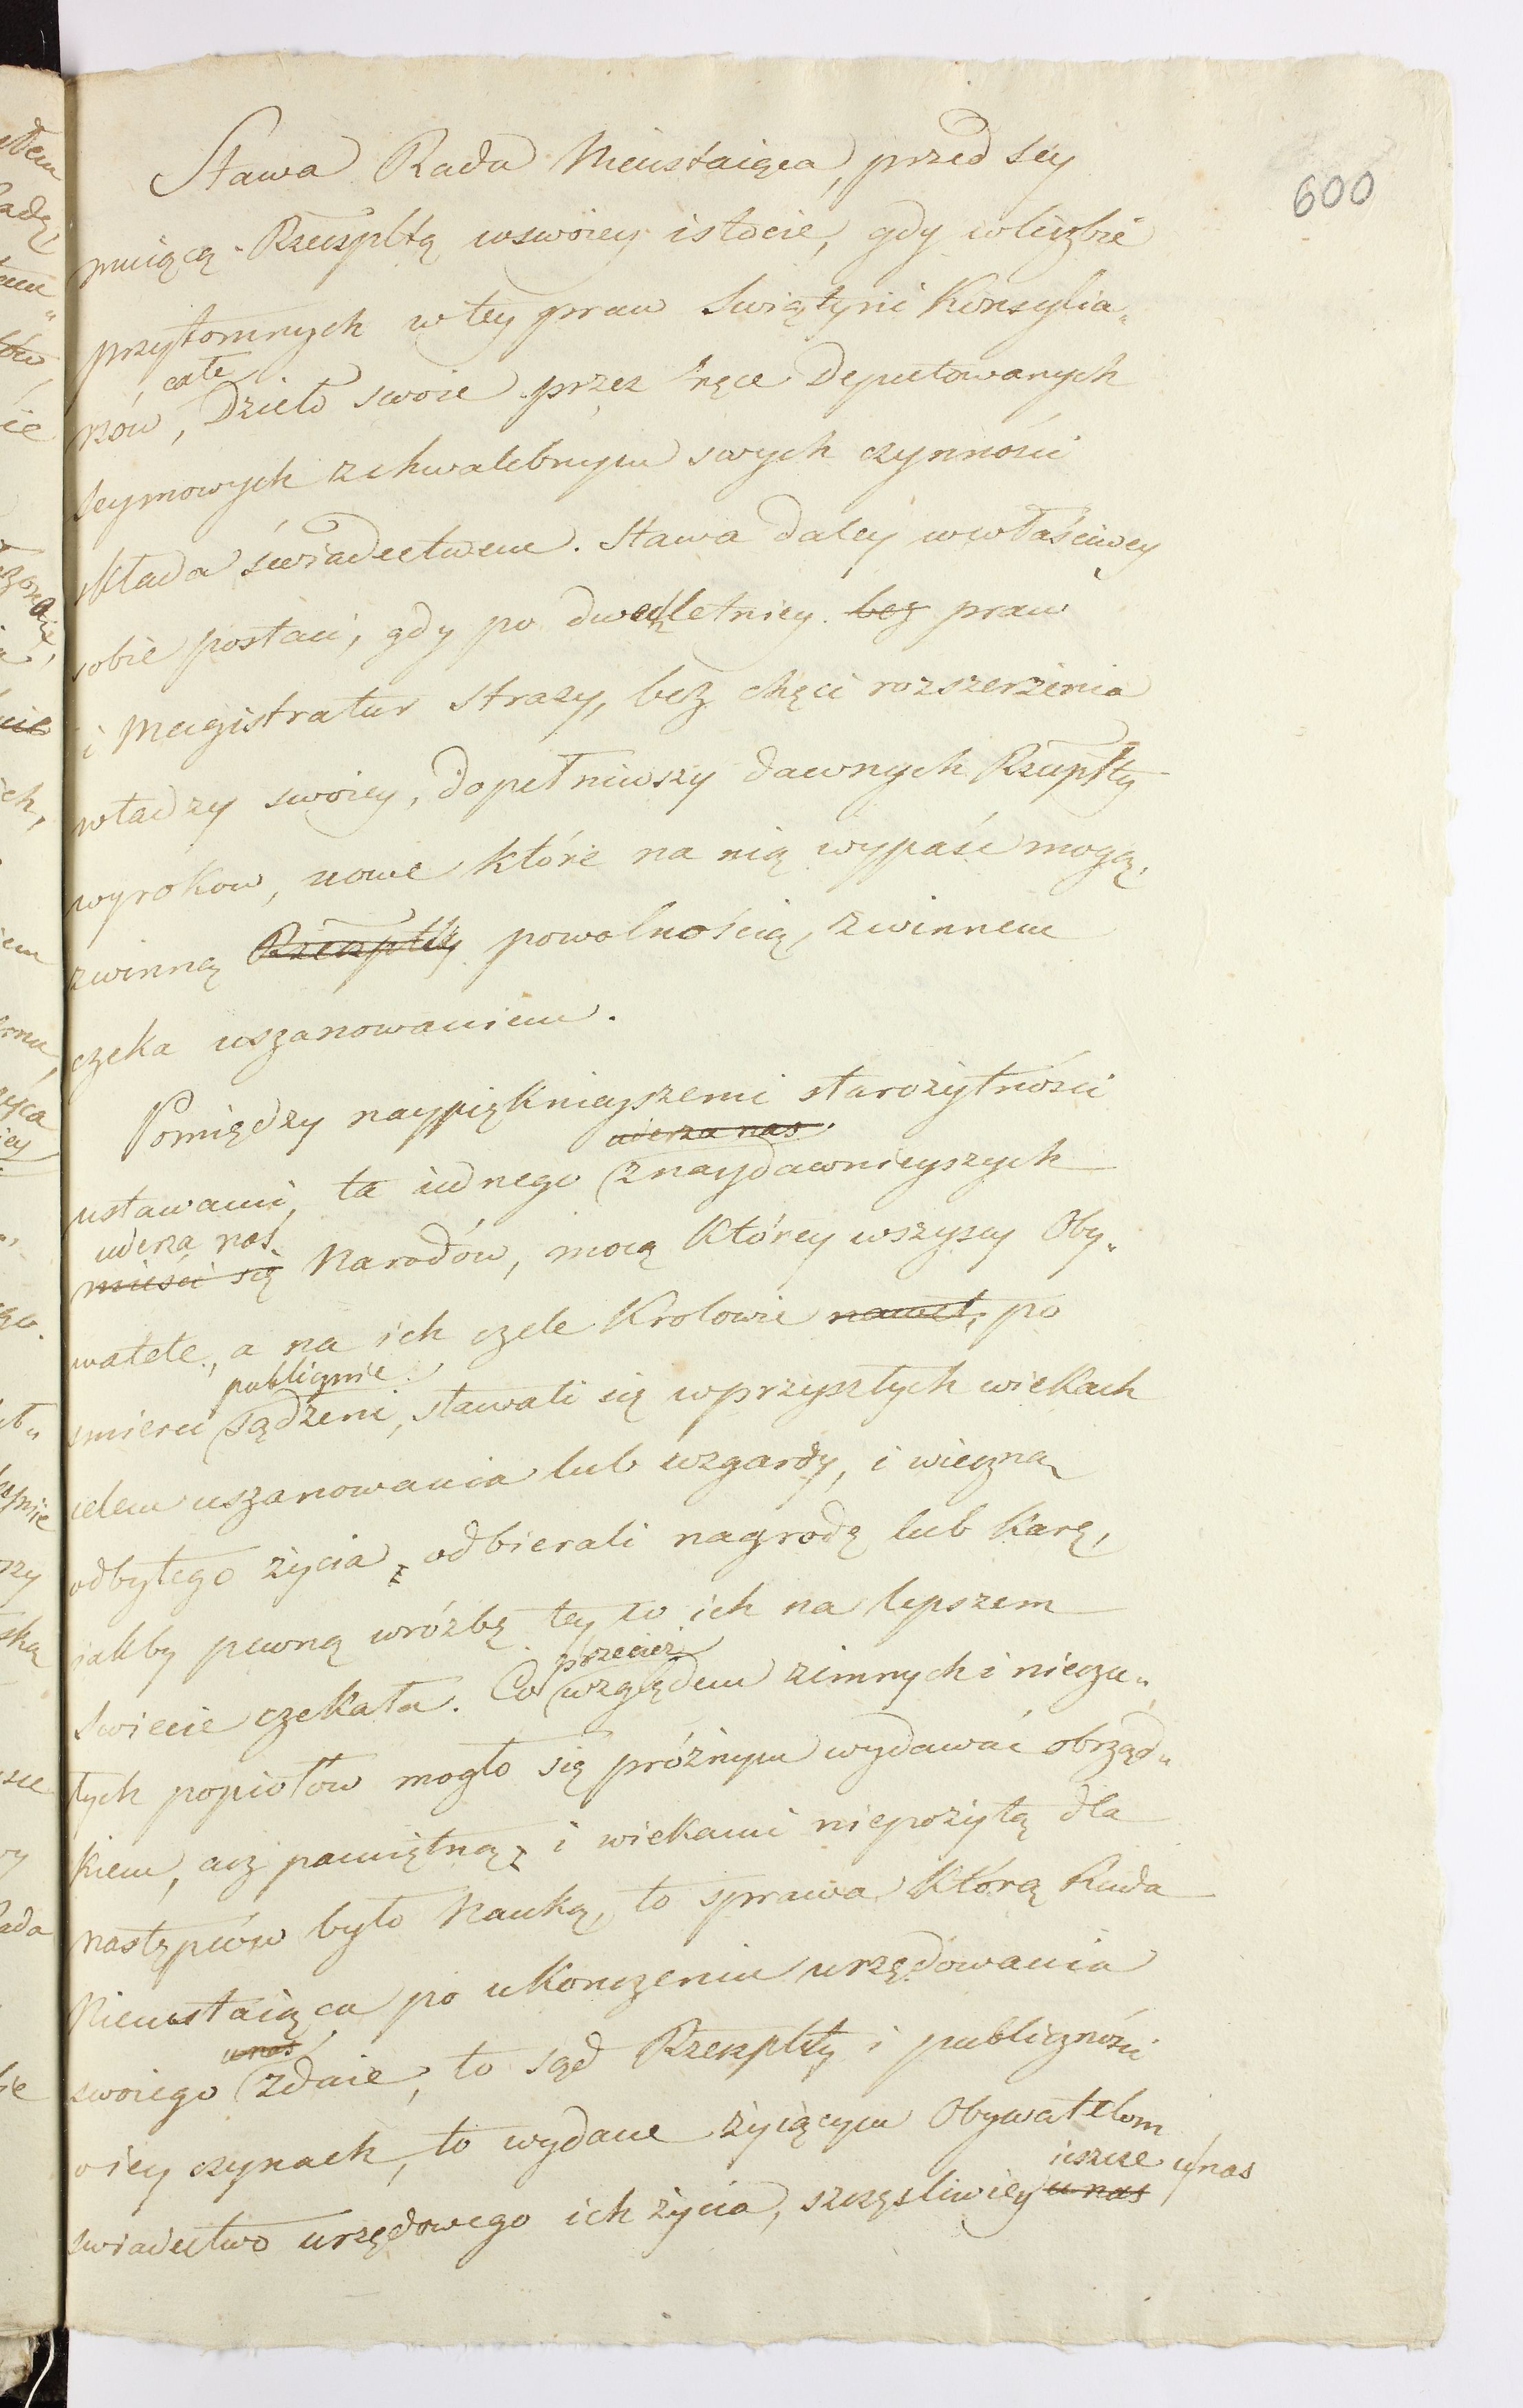 600
Stawa Rada Nieustaiąca, przed Sey
muiącą Rzeuspltą wswoiey istocie, gdy wliczbie
przytomnych wtey praw Swiątyni Konsylia„
całe
rzów, Dzieło swoie przez ręce Deputowanych
Seymowych zchwalebnym swych czynności
składa świadectwem. Stawa daley wwłaściwey
sobie postaci, gdy po dwuletniey bez praw
i Magistratur straży, bez chęci rozszerzenia
władzy swoiey, dopełniwszy dawnych Rzeuplty
wyrokow, nowe które na nią wypaść mogą,
zwinną Rzeczpltey powolnością, zwinnem
czeka uszanowaniem.
Pomiędzy naypięknieyszemi starożytności
uderza nas
ustawami, ta iednego znaydawnieyszych
uderza nas
mieści się Narodów, mocą którey wszyscy Oby„
watele, a na ich czele Krolowie nawet, po
publicznie
smierci sądzeni, stawali się wprzyszłych wiekach
celem uszanowania lub wzgardy, i wieczną
odbytego życia odbierali nagrodę lub karę,
iakby pewną wróżbę tey co ich na lepszem
przecież
Swiecie czekała. Co względem zimnych i nieczu„
łych popiołow mogło się próżnym wydawać obrząd„
kiem, acz pamiętną, i wiekami niepożytą dla
następców było Nauką, to sprawa którą Rada
Nieustaiąca po ukonczeniu urzędowania
unas
swoiego zdaie, to sąd Rzeczplty i publiczności
oiey czynach, to wydane żyiącym Obywatelom
ieszcze u nas
swiadectwo urzędowego ich życia, szczęsliwiey u nas